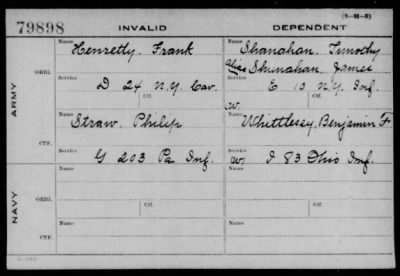 (3-H-3)
79898 INVALID DEPENDENT
Name Name
Henretty, Frank Shanahan, Timothy
alias Shinahan, James
ORIG. Service Service
D 24 N.Y. Cav. E 10 N.Y. Inf.
Ctf. Ctf.
ARMY
Name Name W.
Straw, Philip Whittlesey, Benjamin F
CTF. Service Service
G 203 Pa Inf. (W) I 83 Ohio Inf.
Name Name
ORIG.
Service Service
Ctf. Ctf.
NAVY
Name Name
CTF.
Service Service